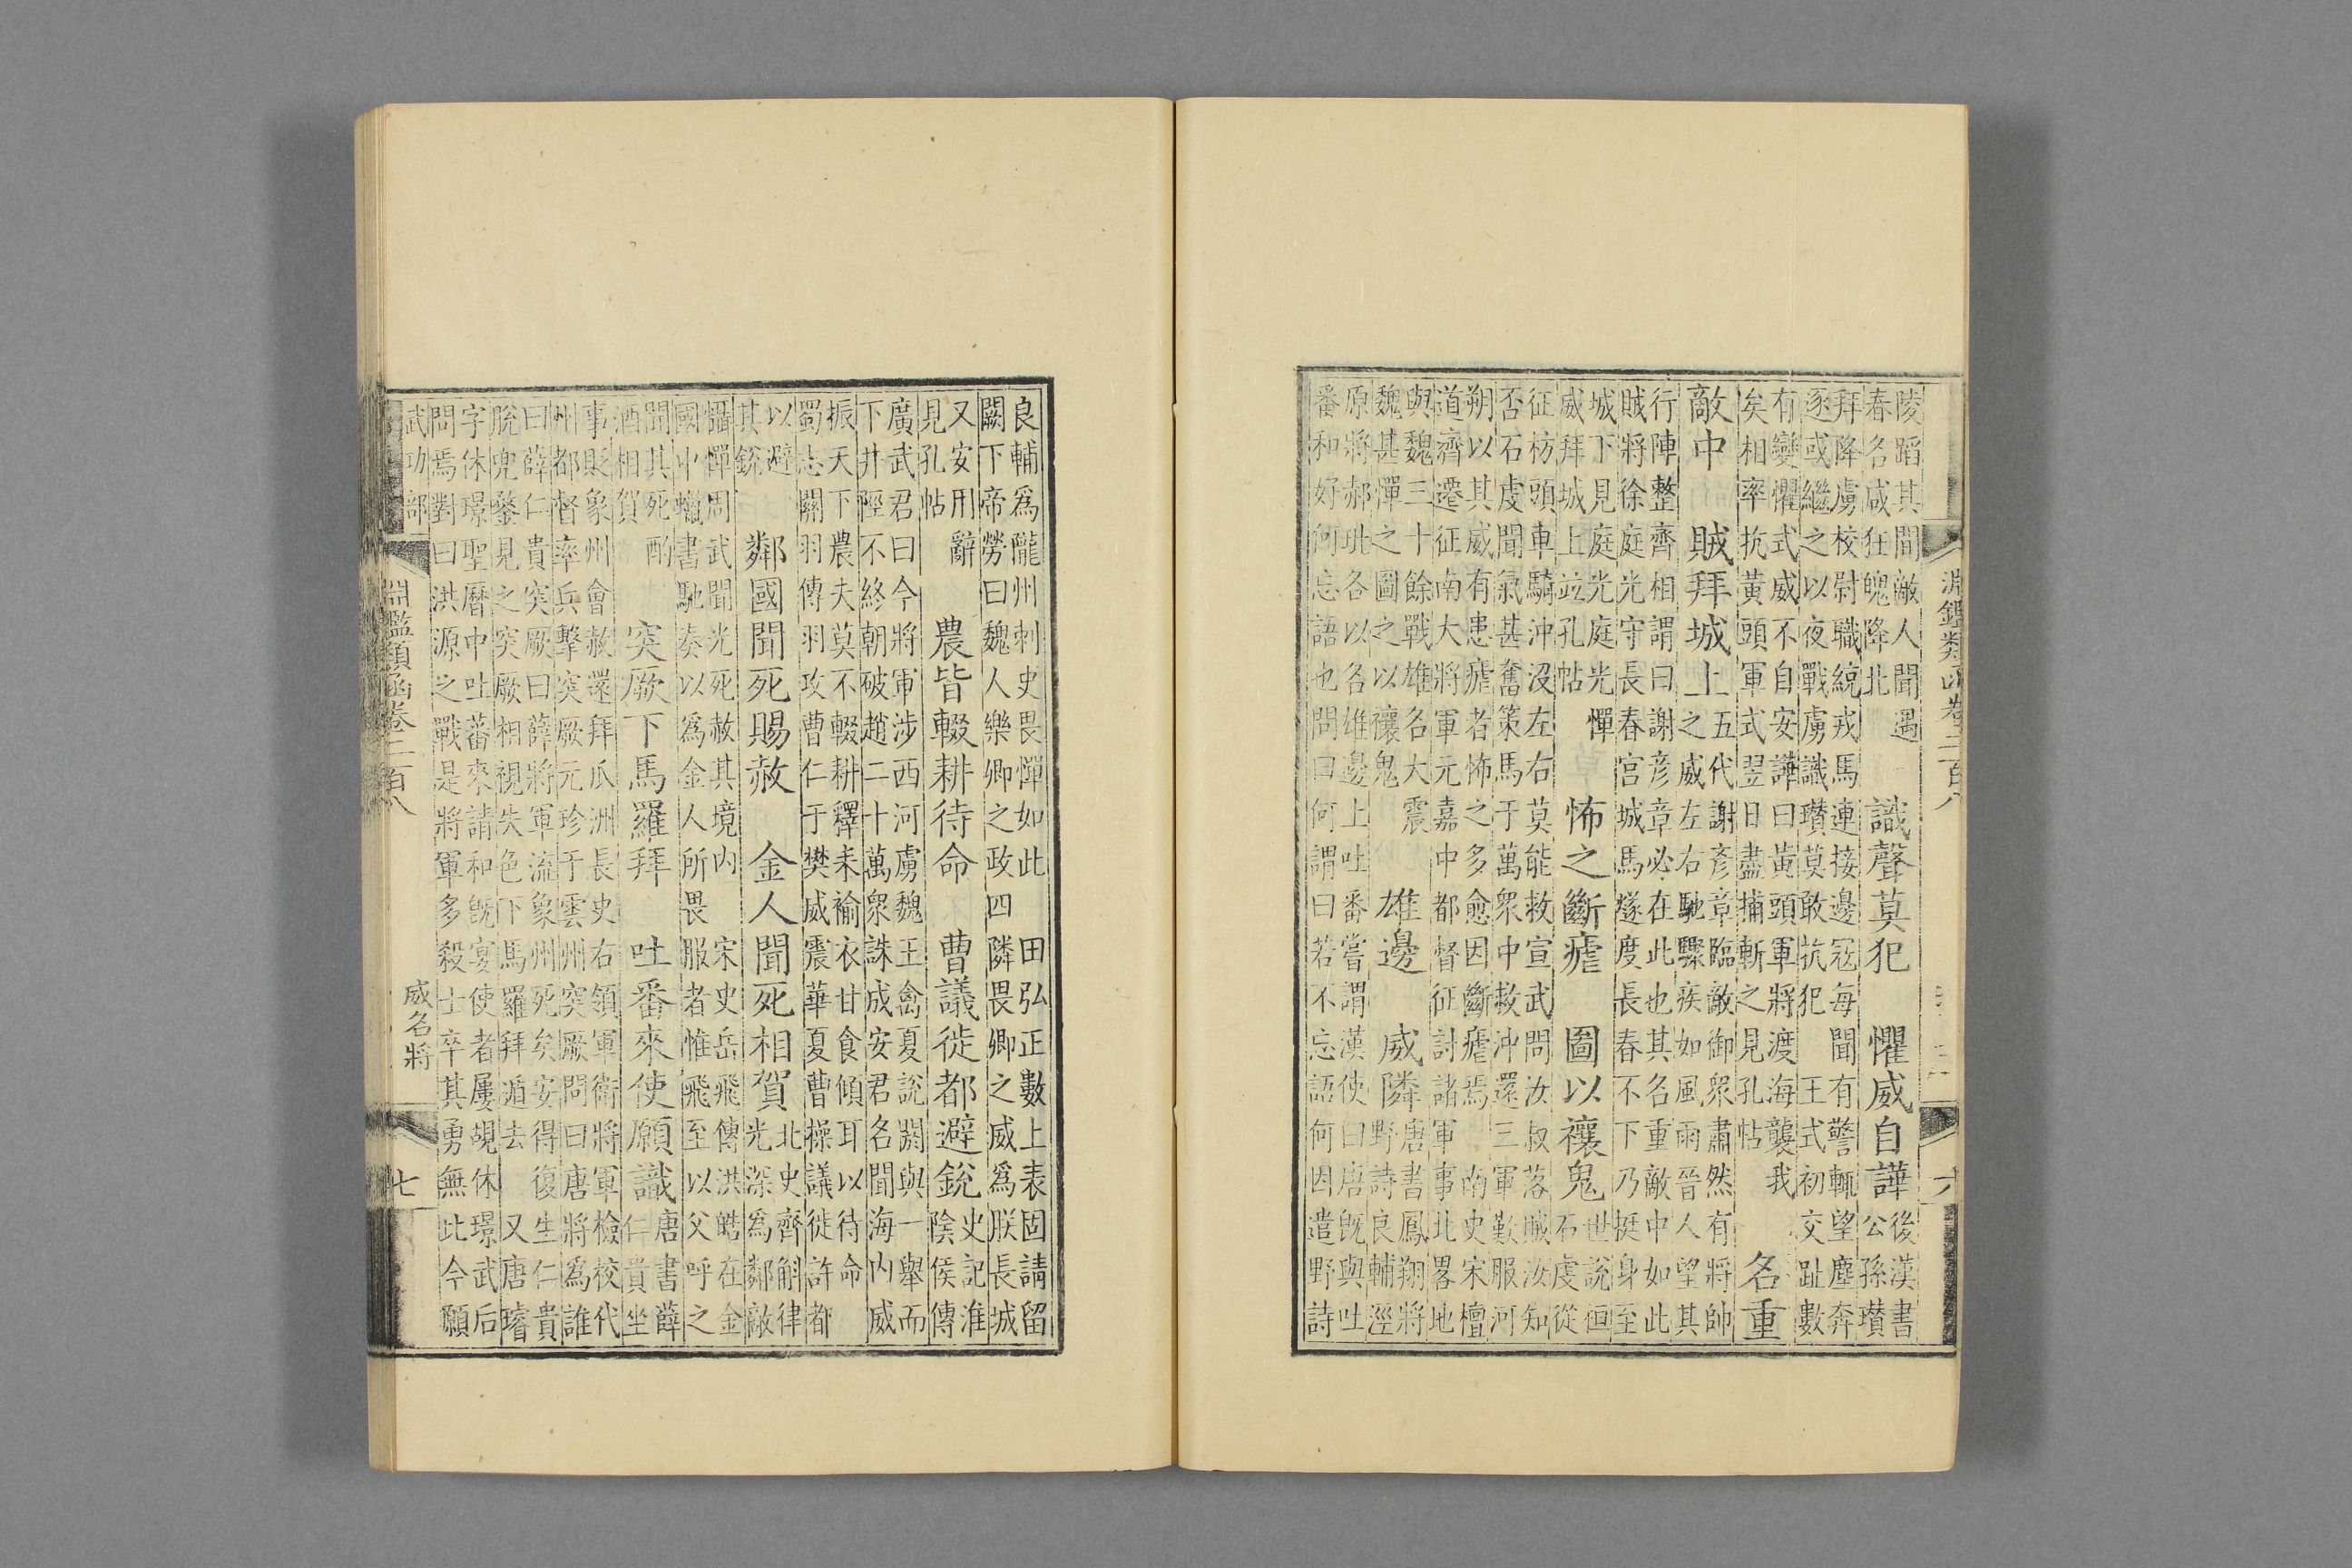 淵鑑類函卷二百八
六
陵蹈其間敵人聞遇
春名咸狂魄降北
識聲莫犯　懼威自譁
後漢書
公孫瓚
拜降虜校尉職統戎馬連接邊寇每聞有警輒望塵奔
逐或繼之以夜戰虜識瓚莫敢抗犯　王式初交趾數
有變懼式威不自安譁曰黄頭軍將渡海襲我
矣相率抗黄頭軍式翌日盡捕斬之見孔帖
名重
敵中　賊拜城上
五代謝彦章臨敵御衆肅然有將帥
之威左右馳驟疾如風雨晉人望其
行陣整齊相謂曰謝彦章必在此也其名重敵中如此
賊將徐庭光守長春宮城馬燧度長春不下乃挺身至
城下見庭光庭光憚
威拜城上竝孔帖
怖之斷瘧　圖以禳鬼
世說桓
石虔從
征枋頭車騎沖沒左右莫能救宣武問汝叔落賊汝知
否石虔聞氣甚奮策馬于萬衆中救沖還三軍歎服河
朔以其威有患瘧者怖之多愈因斷瘧焉　南史宋檀
道濟遷征南大將軍元嘉中都督征討諸軍事北畧地
與魏三十餘戰雄名大震
魏甚憚之圖之以禳鬼
雄邊　威隣
唐書鳳翔將
野詩良輔涇
原將郝玼各以名雄邊上吐番嘗謂漢使曰唐旣與吐
番和好何忘語也問曰何謂曰若不忘語何因遣野詩
良輔爲隴州刺史畏憚如此　田弘正數上表固請留
闕下帝勞曰魏人樂卿之政四隣畏卿之威爲朕長城
又安刑辭
見孔帖
農皆輟耕待命　曹議徙都避銳
史記淮
陰侯傳
廣武君曰今將軍涉西河虜魏王禽夏說閼與一舉而
下井陘不終朝破趙二十萬衆誅成安君名聞海內威
振天下農夫莫不輟耕釋耒褕衣甘食傾耳以待命
蜀志關羽傳羽攻曹仁于樊威震華夏曹操議徙許都
以避
其銳
鄰國聞死賜赦　金人聞死相賀
北史齊斛律
光深爲鄰敵
懾憚周武聞光死赦其境內　宋史岳飛傳洪皓在金
國中蠟書馳奏以爲金人所畏服者惟飛至以父呼之
聞其死酌
酒相賀
突厥下馬羅拜　吐番來使願識
唐書薛
仁貴坐
事貶象州會赦還拜瓜洲長史右領軍衛將軍檢校代
州都督率兵擊突厥元珍于雲州突厥問曰唐將爲誰
曰薛仁貴突厥曰薛將軍流象州死矣安得復生仁貴
脫兜鍪見之突厥相視失色下馬羅拜遁去　又唐璿
字休璟聖曆中吐蕃來請和旣宴使者屢覘休璟武后
問焉對曰洪源之戰是將軍多殺士卒其勇無此今願
武功部
淵鑑類函卷二百八
威名將
七